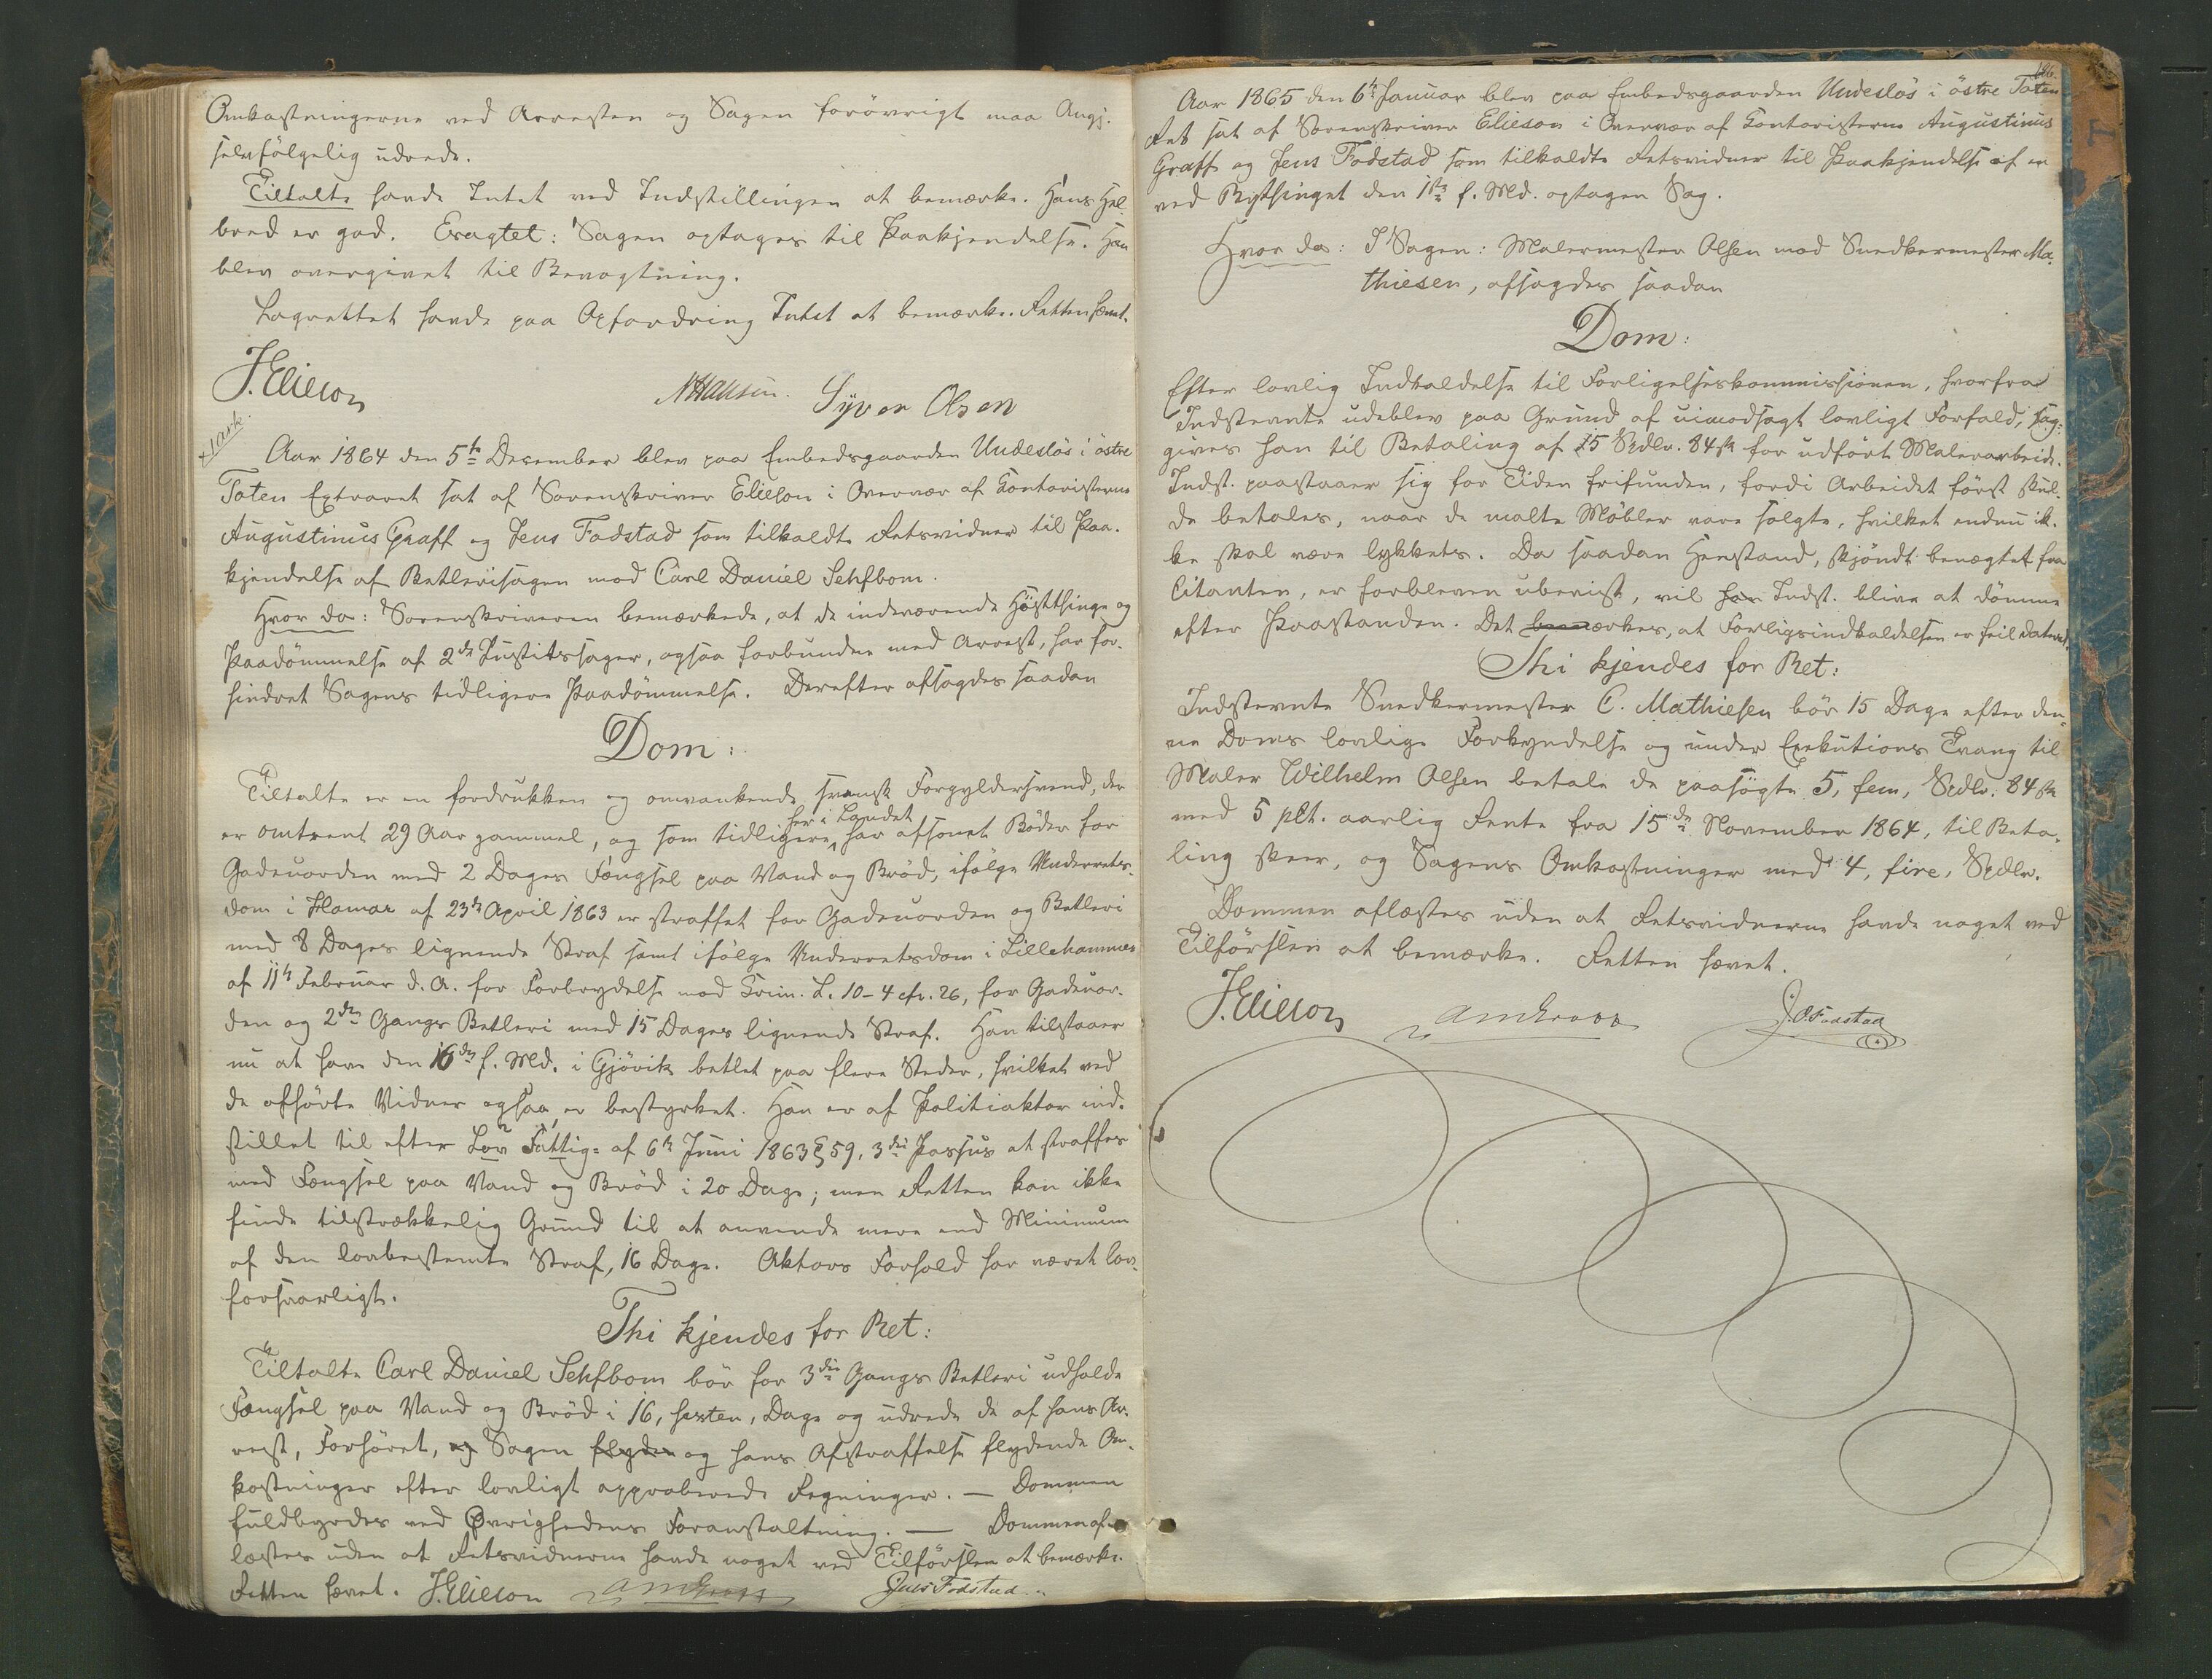 Omkostningerne ved Arresten og Sagen forövrigt maa Angj.
selvfölgelig udrede.
Tiltalte havde Intet ved Indstillingen at bemærke. Hans Hel-
bred er god. Eragtet: Sagen optages til Paakjendelse. Han
blev overgivet til Bevogtning.
Lagrettet havde paa Opfordring Intet at bemærke. Retten hævet.
J. Elieson
NHansen. Syver Olsen
Aar 1864 den 5te December blev paa Embedsgaarden Undeslös i östre
Toten Extraret sat af Sorenskriver Elieson i Overvær af Kontoristerne
Augustinus Graff og Jens Fodstad som tilkaldte Retsvidner til Paa-
kjendelse af Betlerisagen mod Carl Daniel Sehfbom.
Hvor da: Sorenskriveren bemærkede, at de indeværende Höstthinge og
Paadömmelse af 2de Justitssager, ogsaa forbundne med Arrest, har for-
hindret Sagens tidligere Paadömmelse. Derefter afsagdes saadan
Dom:
Tiltalte er en fordrukken og omvankende svensk Forgyldersvend, der
her i Landet
er omtrent 29 Aar gammel, og som tidligere har afsonet Böder for
Gadeuorden med 2 Dages Fængsel paa Vand og Bröd, ifölge Underrets-
dom i Hamar af 23de April 1863 er straffet for Gadeuorden og Betleri
med 8 Dages lignende Straf samt ifölge Underretsdom i Lillehammer
af 11te Februar d. A. for Forbrydelse mod Krim. L. 10-4 cfr. 26, for Gadeuor-
den og 2den Gangs Betleri med 15 Dages lignende Straf. Han tilstaaer
nu at have den 16de f. Md. i Gjövik betlet paa flere Steder, hvilket ved
de afhörte Vidner ogsaa er bestyrket. Han er af Politiaktor ind-
stillet til efter Lov Fattig- af 6te Juni 1863 § 59, 3die Passus at straffes
med Fængsel paa Vand og Bröd i 20 Dage; men Retten kan ikke
finde tilstrækkelig Grund til at anvende mere end Minimum
af den lovbestemte Straf, 16 Dage. Aktors Forhold har været lov-
forsvarligt.
Thi kjendes for Ret:
Tiltalte Carl Daniel Sehfbom bör for 3die Gangs Betleri udholde
Fængsel paa Vand og Bröd i 16, sexten, Dage og udrede de af hans Ar-
rest, Forhöret, og Sagen flyden og hans Afstraffelse flydende Om-
kostninger efter lovligt approberede Regninger. — Dommen
fuldbyrdes ved Övrighedens Foranstaltning. — Dommen af-
læstes uden at Retsvidnerne havde noget ved Tilförslen at bemærke.
Retten hævet. J. Elieson AmGraff Jens Fodstad
186.
Aar 1865 den 6te Januar blev paa Embedsgaarden Undeslös i östre Toten
Ret sat af Sorenskriver Elieson i Overvær af Kontoristerne Augustinus
Graff og Jens Fodstad som tilkaldte Retsvidner til Paakjendelse af en
ved Bythinget den 1ste f. Md. optagen Sag.
Hvor da: I Sagen: Malermester Olsen mod Snedkermester Ma-
thiesen, afsagdes saadan
Dom:
Efter lovlig Indkaldelse til Forligelseskommissionen, hvorfra
Indstevnte udeblev paa Grund af uimodsagt lovligt Forfald, sag-
gives han til Betaling af 15 Spdlr. 84 sk for udfört Malerarbeide.
Indst. paastaaer sig for Tiden frifunden, fordi Arbeidet först skul-
de betales, naar de malte Möbler vare solgte, hvilket endnu ik-
ke skal være lykkets. Da saadan Henstand, skjöndt benægtet fra
Citanten, er forbleven ubevist, vil han Indst. blive at dömme
efter Paastanden. Det bemærkes, at Forligsindkaldelsen er feil dateret.
Thi kjendes for Ret:
Indstevnte Snedkermester C. Mathiesen bör 15 Dage efter den-
ne Doms lovlige Forkyndelse og under Exekutions Tvang til
Maler Wilhelm Olsen betale de paasögte 5, fem, Spdlr. 84 sk
med 5 pCt. aarlig Rente fra 15de November 1864, til Beta-
ling skeer, og Sagens Omkostninger med 4, fire, Spdlr.
Dommen aflæstes uden at Retsvidnerne havde noget ved
Tilförslen at bemærke. Retten hævet.
J. Elieson AmGraff J. O. Fodstad